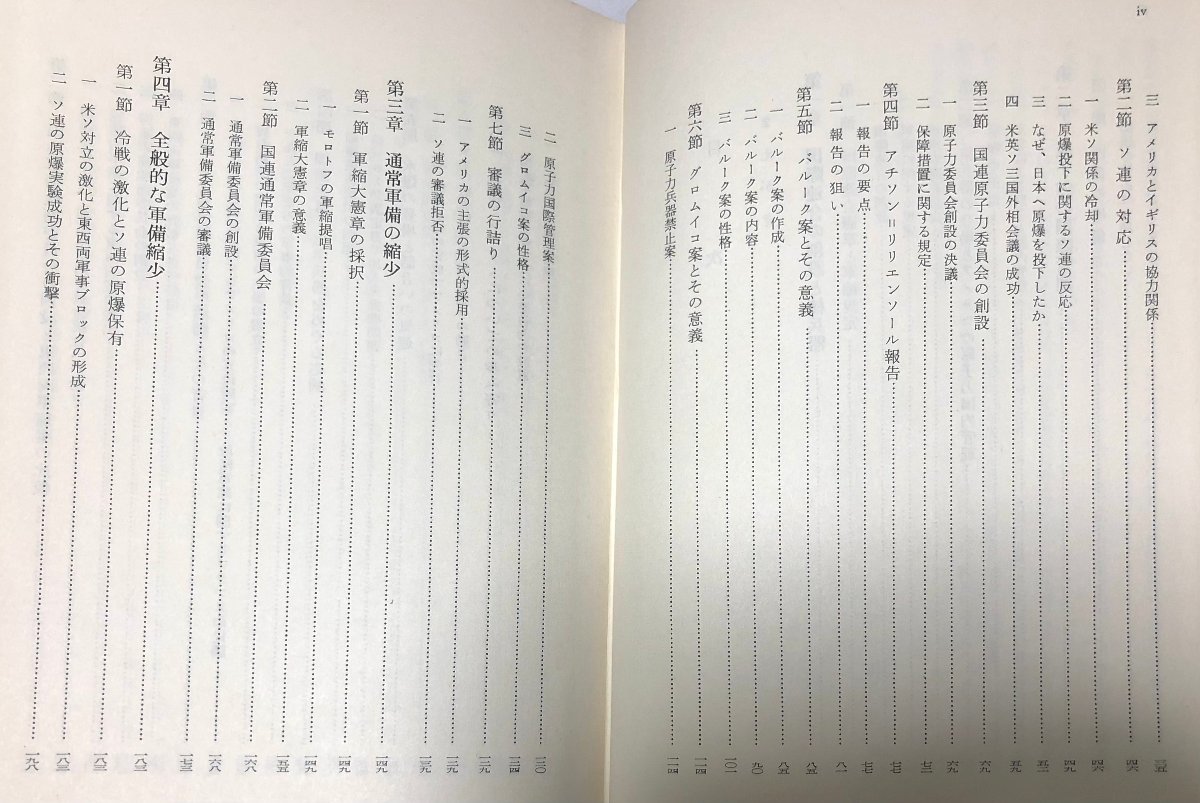 iv
三 アメリカとイギリスの協力関係……三五
第二節 ソ連の対応……四六
一 米ソ関係の冷却……四六
二 原爆投下に関するソ連の反応……四九
三 なぜ、日本へ原爆を投下したか……五二
四 米英ソ三国外相会議の成功……五九
第三節 国連原子力委員会の創設……六九
一 原子力委員会創設の決議……六九
二 保障措置に関する規定……七三
第四節 アチソン＝リリエンソール報告……七七
一 報告の要点……七七
二 報告の狙い……八一
第五節 バルーク案とその意義……八五
一 バルーク案の作成……八五
二 バルーク案の内容……九〇
三 バルーク案の性格……一〇一
第六節 グロムイコ案とその意義……一一四
一 原子力兵器禁止案……一一四
二 原子力国際管理案……一二〇
三 グロムイコ案の性格……一二四
第七節 審議の行詰り……一三九
一 アメリカの主張の形式的採用……一三九
二 ソ連の審議拒否……一三九
第三章 通常軍備の縮少……一四九
第一節 軍縮大憲章の採択……一四九
一 モロトフの軍縮提唱……一四九
二 軍縮大憲章の意義……一五五
第二節 国連通常軍備委員会……一六八
一 通常軍備委員会の創設……一六八
二 通常軍備委員会の審議……一七三
第四章 全般的な軍備縮少……一八三
第一節 冷戦の激化とソ連の原爆保有……一八三
一 米ソ対立の激化と東西両軍事ブロックの形成……一八三
二 ソ連の原爆実験成功とその衝撃……一九八